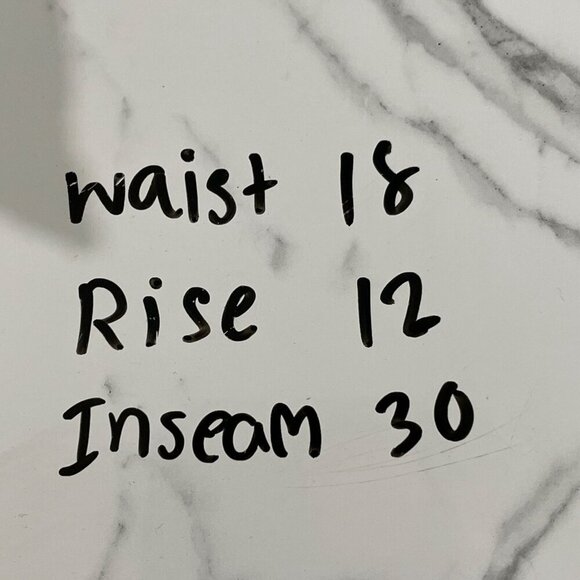 waist 18
Rise 12
Inseam 30